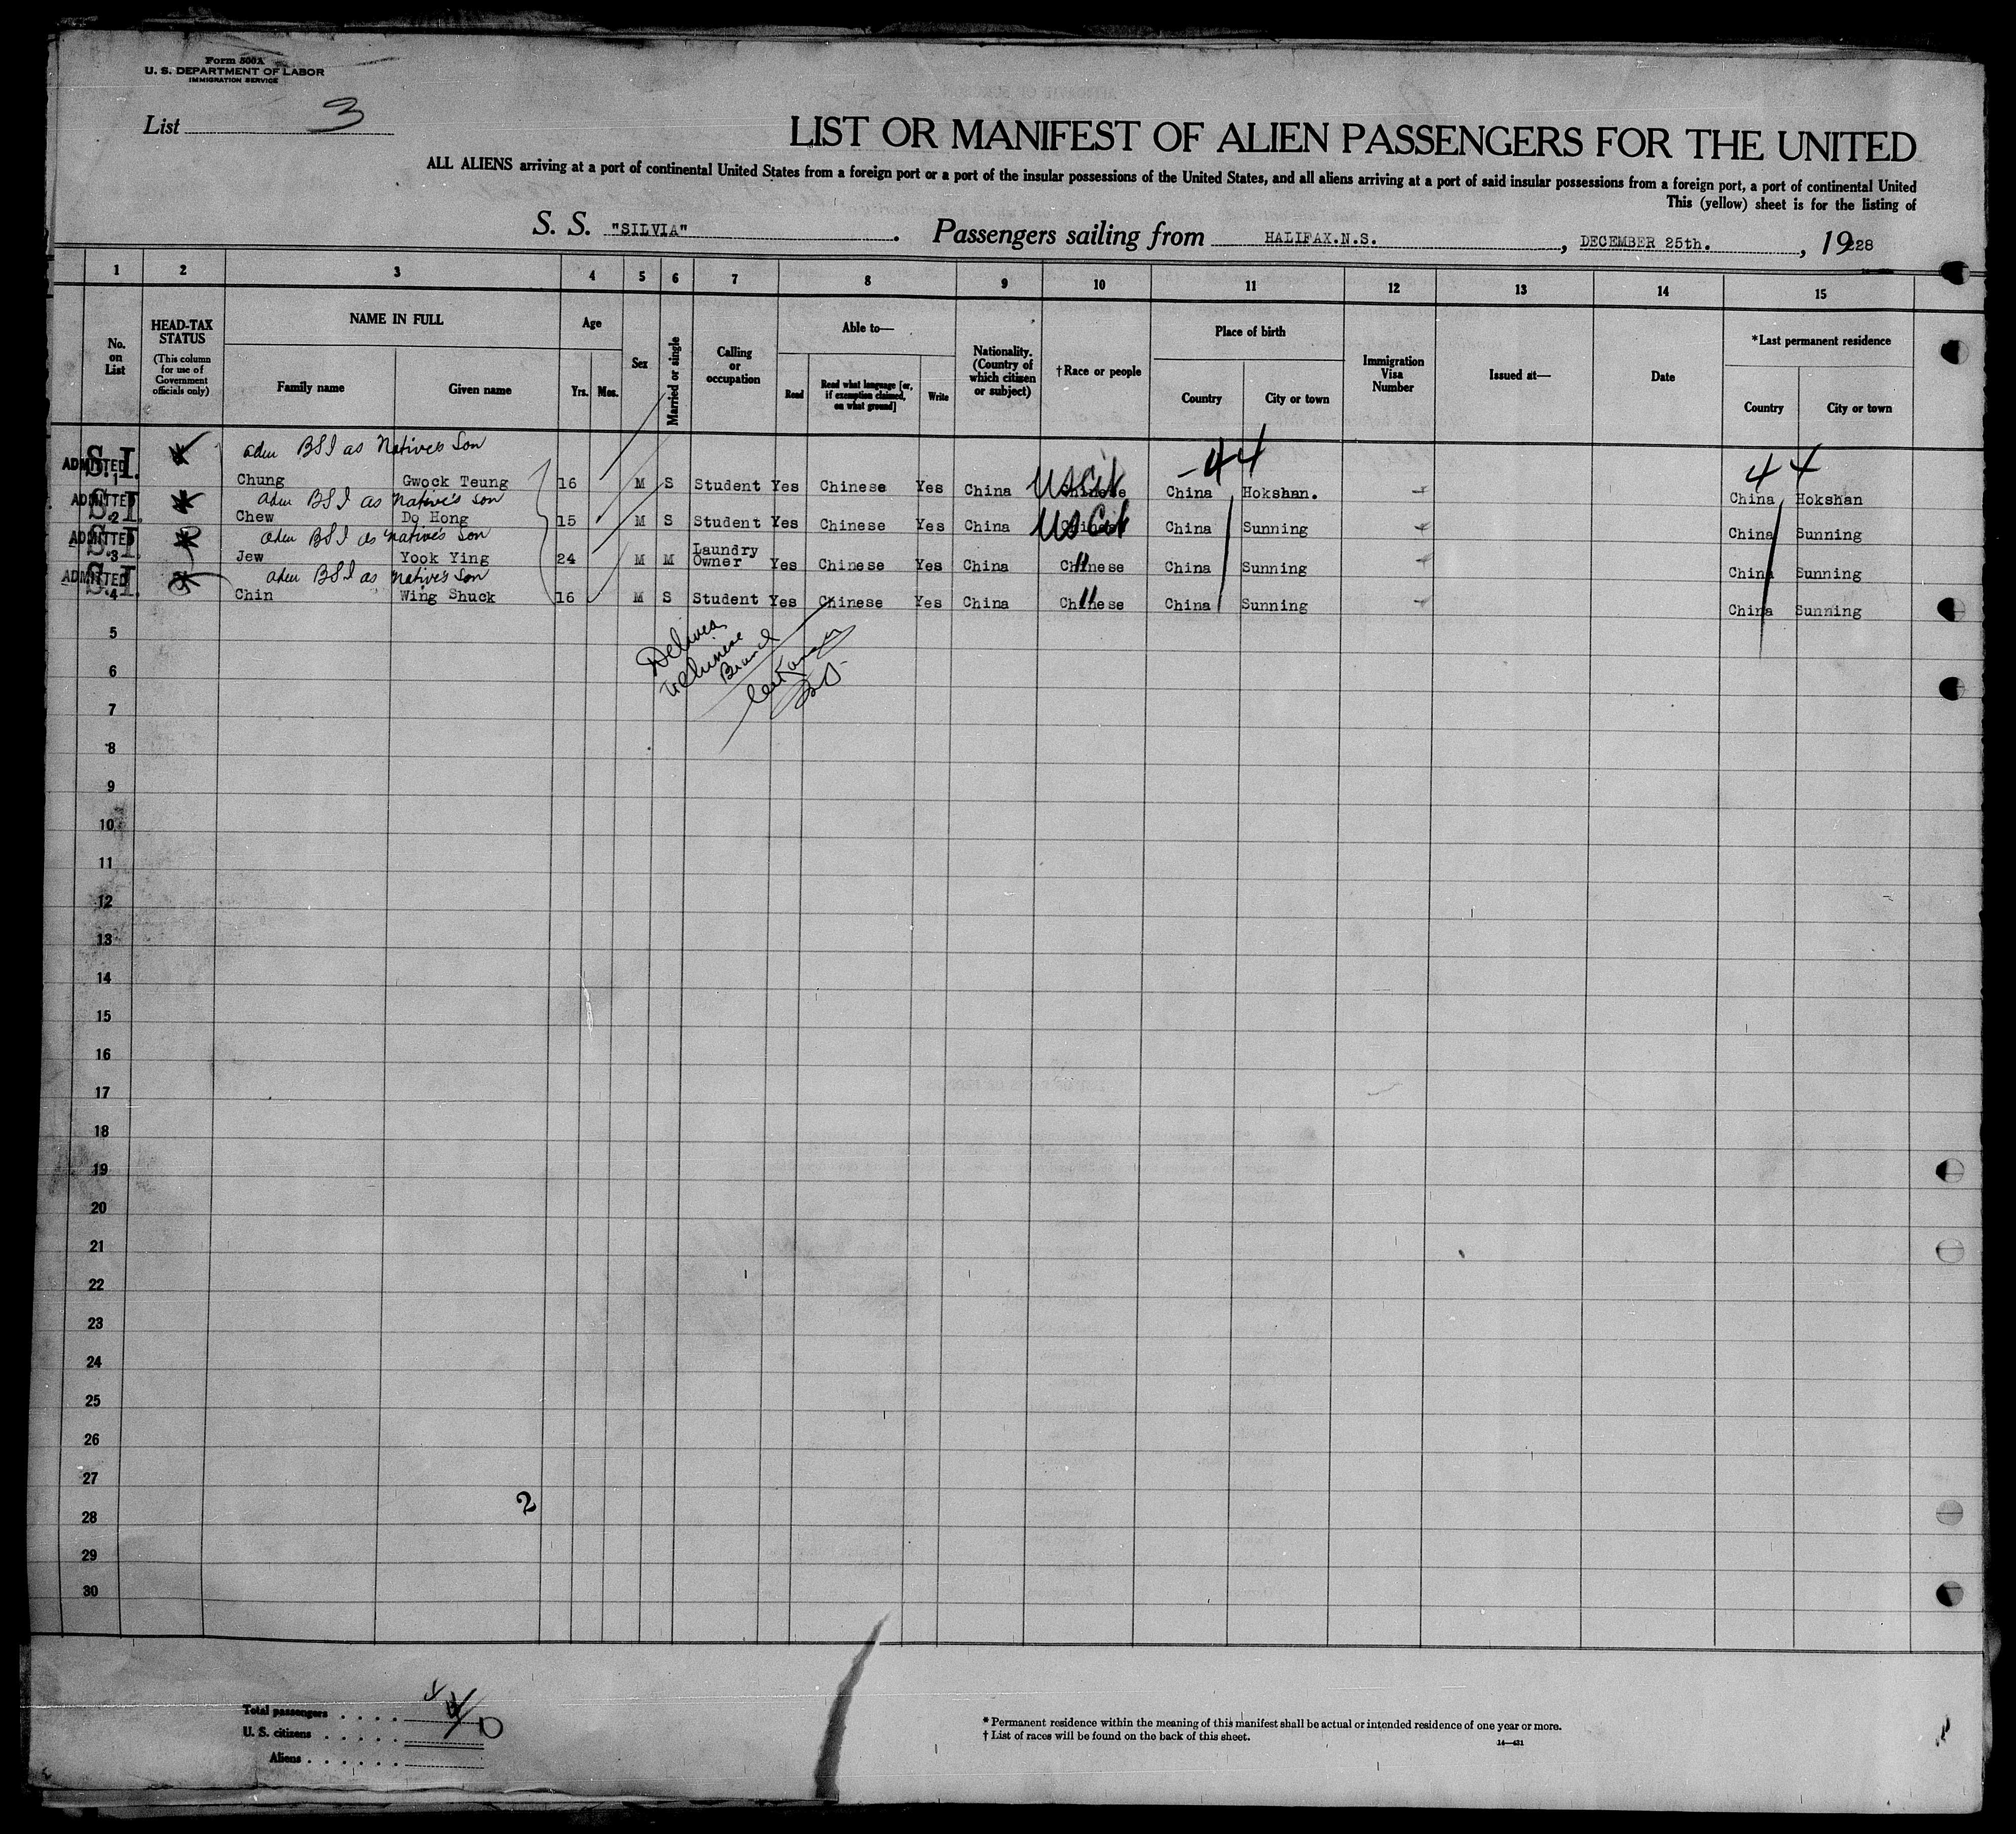 Form 500A
U. S. DEPARTMENT OF LABOR
IMMIGRATION SERVICE
List 3
LIST OR MANIFEST OF ALIEN PASSENGERS FOR THE UNITED
ALL ALIENS arriving at a port of continental United States from a foreign port or a port of the insular possessions of the United States, and all aliens arriving at a port of said insular possessions from a foreign port, a port of continental United
This (yellow) sheet is for the listing of
S. S. "SILVIA". Passengers sailing from HALIFAX.N.S., DECEMBER 25th., 19228
1 2 3 4 5 6 7 8 9 10 11 12 13 14 15
No. on List
HEAD-TAX STATUS
(This column for use of Government officials only)
NAME IN FULL
Family name
Given name
Age
Yrs.
Mos.
Sex
Married or single
Calling or occupation
Able to—
Read
Read what language [or, if exemption claimed, on what ground]
Write
Nationality. (Country of which citizen or subject)
†Race or people
Place of birth
Country
City or town
Immigration Visa Number
Issued at—
Date
*Last permanent residence
Country
City or town
adm BSI as Native's Son
44 44
ADMITTED S.I. 1 Chung Gwock Teung 16 M S Student Yes Chinese Yes China Chinese US Cit China Hokshan. China Hokshan
adm BSI as native's son
ADMITTED S.I. 2 Chew Do Hong 15 M S Student Yes Chinese Yes China Chinese US Cit China Sunning China Sunning
adm BSI as native's son
ADMITTED S.I. 3 Jew Yook Ying 24 M M Laundry Owner Yes Chinese Yes China Chinese " China Sunning China Sunning
adm BSI as native's son
ADMITTED S.I. 4 Chin Wing Shuck 16 M S Student Yes Chinese Yes China Chinese " China Sunning China Sunning
Chinese
Branch
5
6
7
8
9
10
11
12
13
14
15
16
17
18
19
20
21
22
23
24
25
26
27
2
28
29
30
Total passengers . . . .
U. S. citizens . . . . .
Aliens . . . . . .
* Permanent residence within the meaning of this manifest shall be actual or intended residence of one year or more.
† List of races will be found on the back of this sheet.
14—431